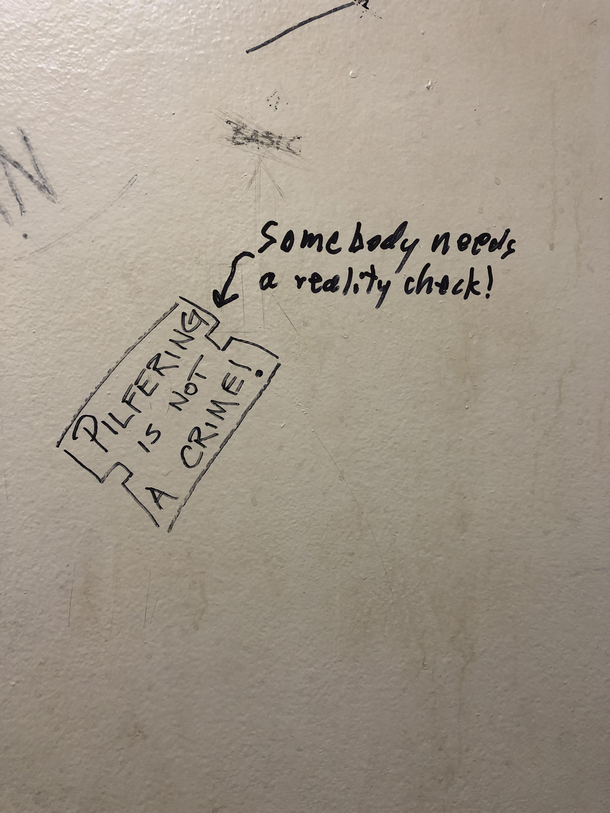 BASIC
Somebody needs
a reality check!
PILFERING
IS NOT
A CRIME!